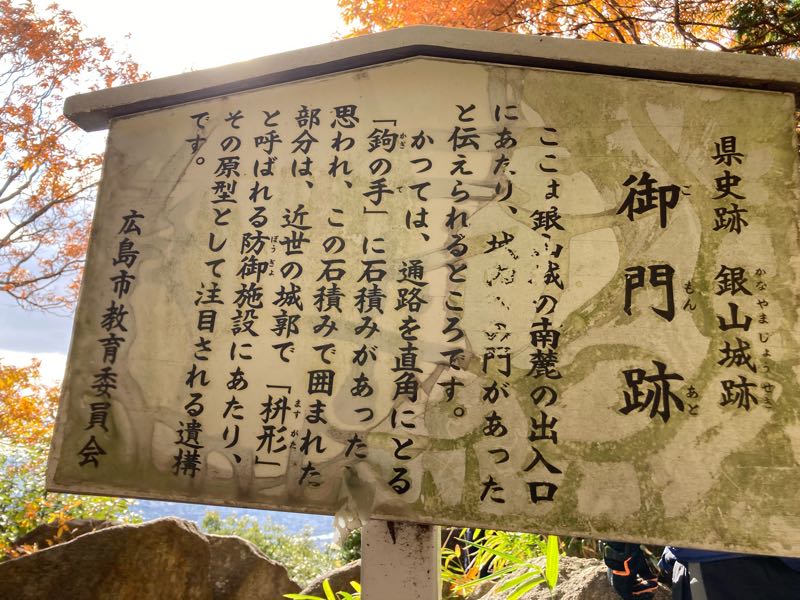 県史跡 銀山城跡
かなやまじょうせき
御門跡
こもんあと
ここは銀山城の南麓の出入口
にあたり、城内 門があった
と伝えられるところです。
かつては、通路を直角にとる
「鉤の手」に石積みがあった
かぎ て
思われ、この石積みで囲まれた
部分は、近世の城郭で「枡形」
ますがた
と呼ばれる防御施設にあたり、
ぼうぎょ
その原型として注目される遺構
です。
広島市教育委員会